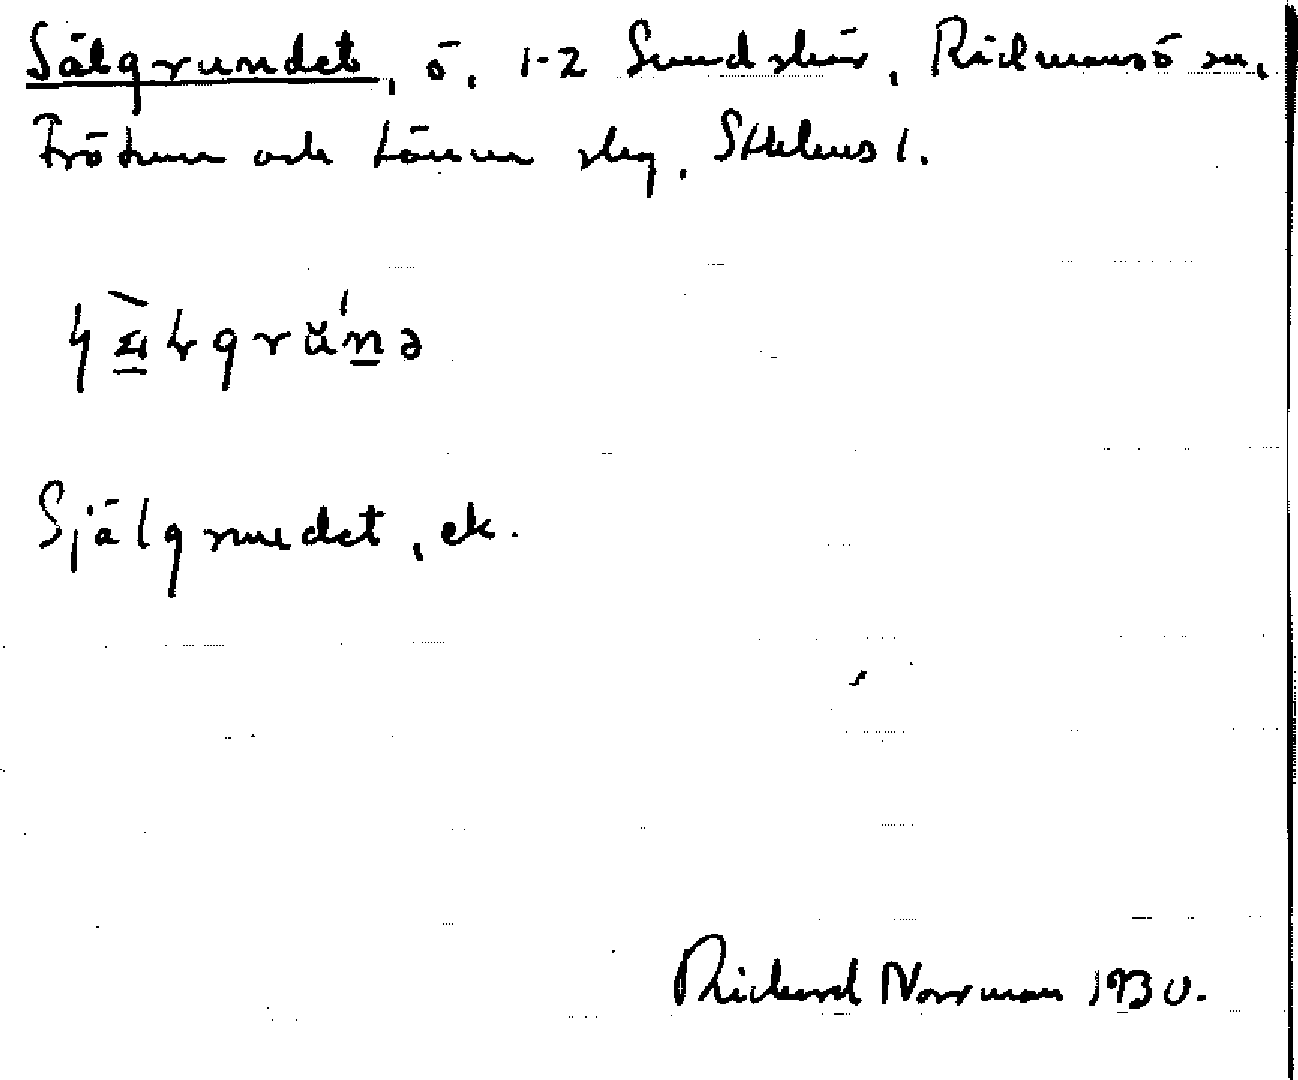 Sälgrundet, ö. 1-2 Sundskär, Rådmansö sn.
Frötuna och Länna skg, Sthlms l.
Själgrundet, ek.
Richard Norrman 1930.